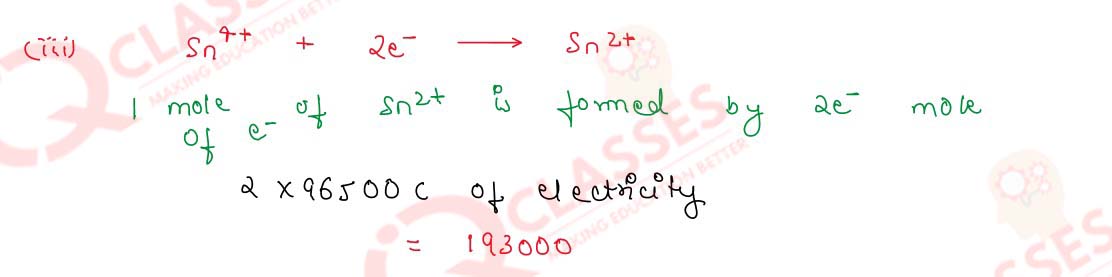 (iii) Sn⁴⁺ + 2e⁻ ⟶ Sn²⁺
1 mole of Sn²⁺ is formed by 2e⁻ mole
of e⁻
2 × 96500 C of electricity
= 193000
CLASSES
MAKING EDUCATION BETTER
CLASSES
MAKING EDUCATION BETTER
SSES